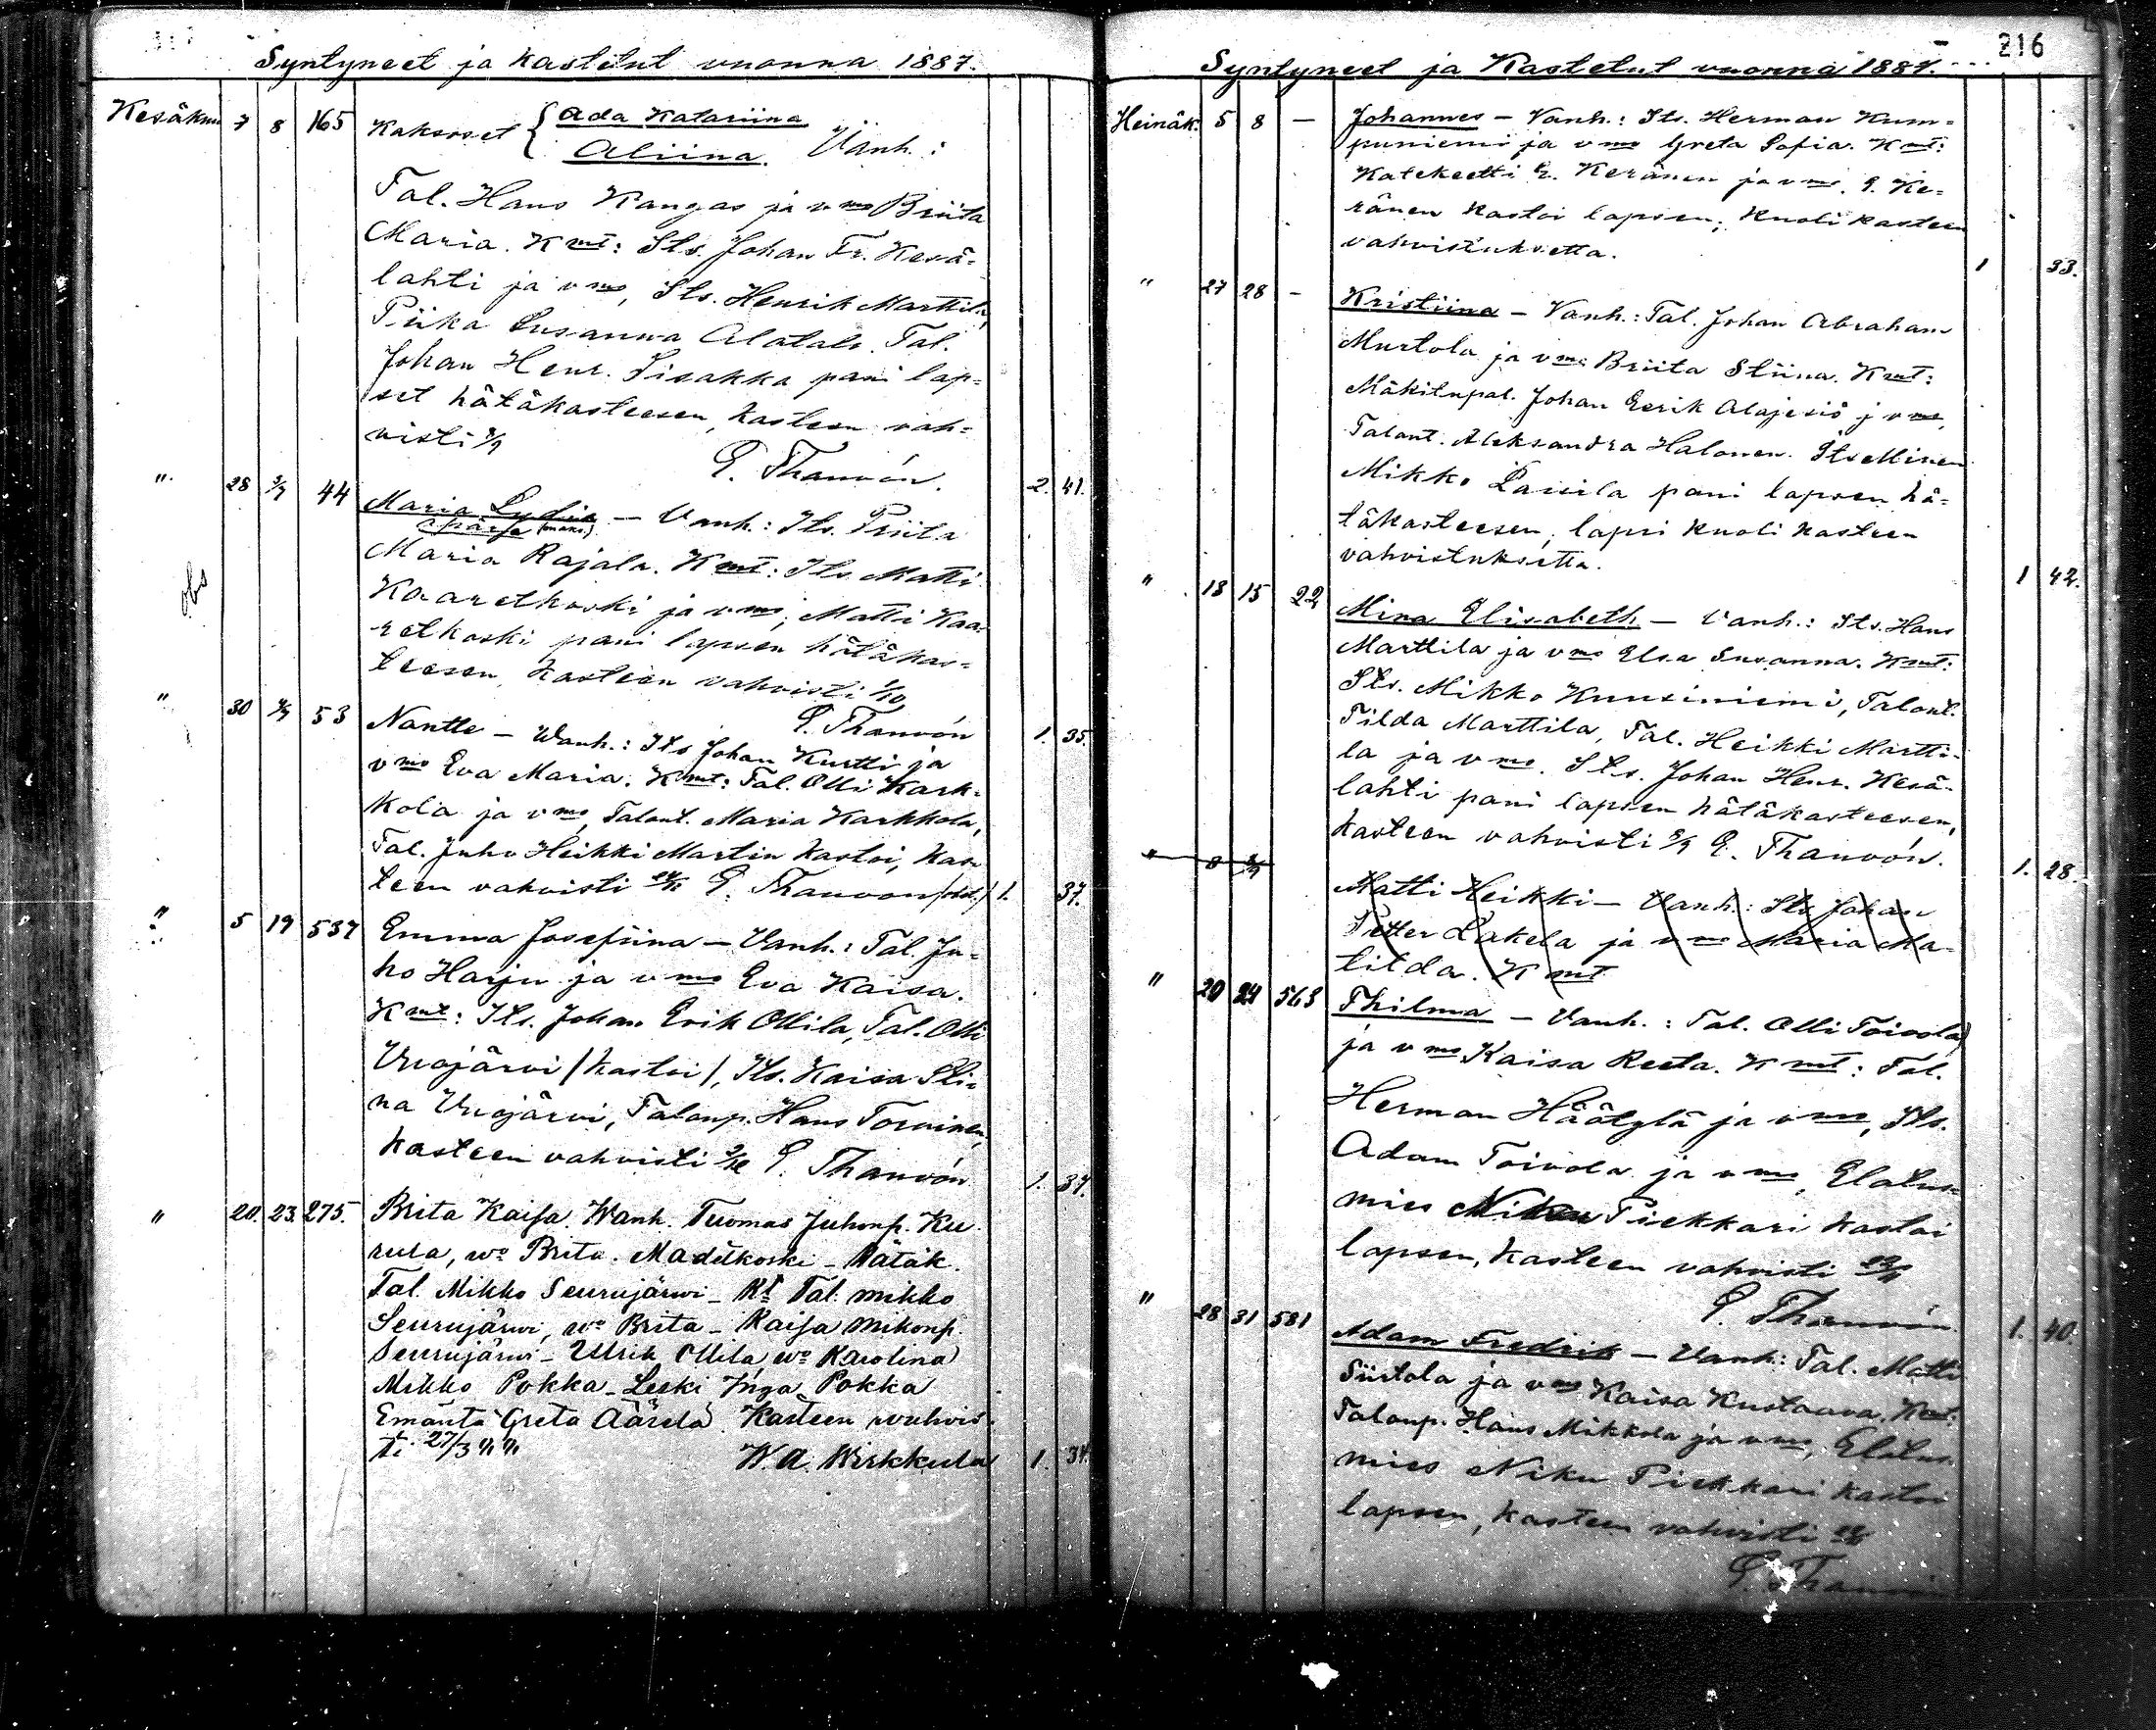 Syntyneet ja kastetut vuonna 1887.
Kesäkuu 7 8 165 Kaksoset { Ada Katariina
Aliina. Vanh.:
Tal. Hans Kangas ja vmo Briita
Maria. Kmt: Its. Johan Fr. Kesä-
lahti ja vmo, Its. Henrik Marttila,
Piika Susanna Alatalo. Tal.
Johan Henr. Sisakka pani lap-
set hätäkasteesen, kasteen vah-
visti
E. Thauvón. 2. 41.
" 28 44 Maria Lydia — Vanh.: Its. Priita
Maria Rajala. Kmt: Its. Matti
Kaaretkoski ja vmo; Matti Kaa-
retkoski pani lapsen hätäkas-
teesen, kasteen vahvisti 1/10
E. Thauvón 1. 35.
" 30 53 Nantte — Wanh.: Its Johan Kurtti ja
vmo Eva Maria. Kmt: Tal. Olli Kark-
kola ja vmo, Talont. Maria Karkkola,
Tal. Juho Heikki Martin kastoi, kas-
teen vahvisti E. Thauvon 1. 37.
" 5 19 537 Emma Josefiina — Vanh.: Tal. Ju-
ho Harju ja vmo Eva Kaisa.
Kmt: Its. Johan Erik Ollila, Tal. Olli
Vuojärvi /kastoi/, Its. Kaisa Sti-
na Vuojärvi, Talonp. Hans Torvinen,
kasteen vahvisti E. Thauvón 1. 37.
" 20. 23. 275. Brita Kaisa. Wanh. Tuomas Juhonp. Ku
rula, wo Brita. Madetkoski - Hätäk.
Tal. Mikko Seurujärwi - Kt Tal. mikko
Seurujärwi, wo Brita - Kaisa Mikonp.
Seurujärwi - Ulrik Ollila wo Karolina
Mikko Pokka - Leski Inga Pokka
Emäntä Greta Äärelä. Kasteen wahvis-
ti 27/3
W. A. Wirkkula 1. 34.
216
Syntyneet ja Kastetut vuonna 1887.
Heinäk. 5 8 — Johannes — Vanh.: Its. Herman Kum-
puniemi ja vmo Greta Sofia. Kmt:
Katekeetti E. Keränen ja vmo. E. Ke-
ränen kastoi lapsen; kuoli kasteen
vahvistuksetta. 1 33.
" 27 28 - Kristiina — Vanh.: Tal. Johan Abraham
Murtola ja vmo Briita Stiina. Kmt:
Mäkitupal. Johan Eerik Alajesiö j vmo,
Talont. Aleksandra Halonen. Itsellinen
Mikko Lassila pani lapsen hä-
täkasteesen, lapsi kuoli kasteen
vahvistuksetta. 1 42.
" 13 15 22 Mina Elisabeth — Vanh.: Its. Hans
Marttila ja vmo Elsa Susanna. Kmt:
Its. Mikko Kuusiniemi, Talont.
Tilda Marttila, Tal. Heikki Martti-
la ja vmo. Its. Johan Henr. Kesä-
lahti pani lapsen hätäkasteesen,
kasteen vahvisti E. Thauvón. 1. 28.
" 8 Matti Heikki — Vanh.: Its Johan
Petter Lakela ja vmo Maria Ma-
tilda. Kmt
" 20 24 563 Thilma — Vanh.: Tal. Olli Toivola
ja vmo Kaisa Reeta. Kmt: Tal.
Herman Häätylä ja vmo, Its.
Adam Toivola ja vmo, Elatus-
mies Niku Piekkari kastoi
lapsen, kasteen vahvisti
E. Thauvón 1. 40.
" 28 31 581 Adam Fredrik — Vanh.: Tal. Matti
Siirtola ja vmo Kaisa Kustaava. Kmt:
Talonp. Hans Mikkola ja vmo, Elatus-
mies Niku Piekkari kastoi
lapsen, kasteen vahvisti
E. Thauvón